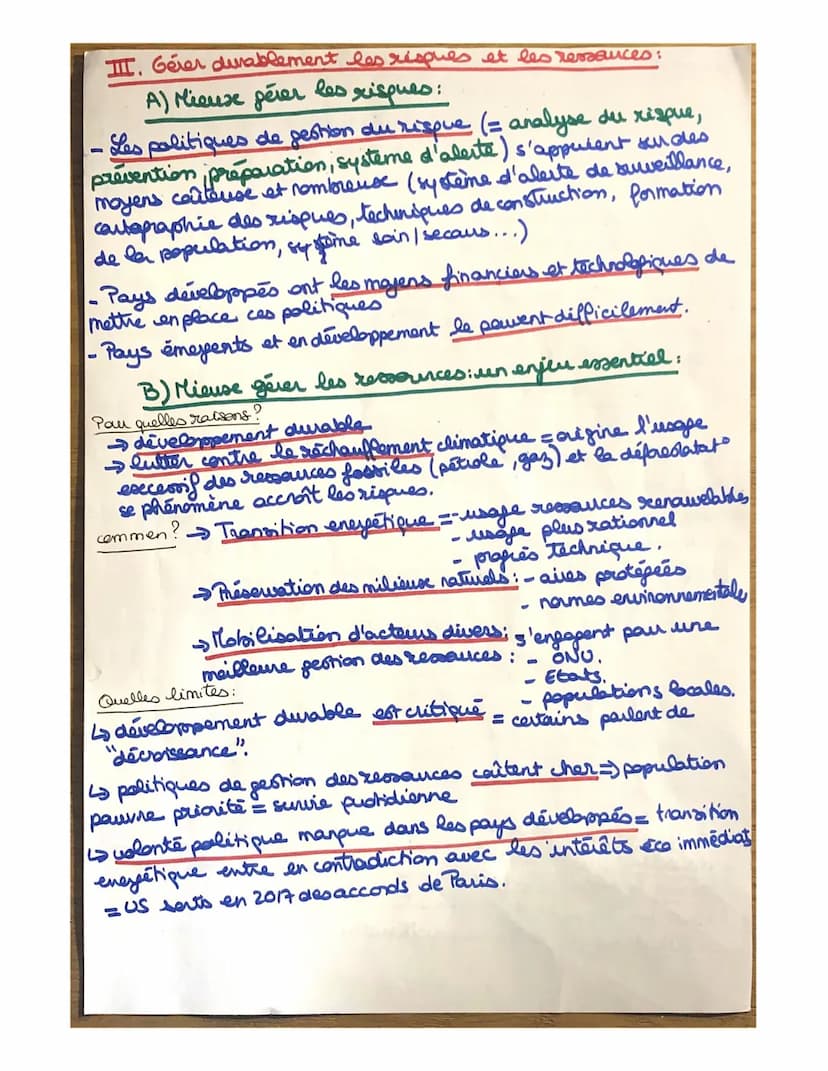 III. Gérer durablement les risques et les ressources :
A) Mieux gérer les risques :
- Les politiques de gestion du risque (= analyse du risque,
prévention, préparation, système d'alerte) s'appuient sur des
moyens coûteuse et nombreuse (système d'alerte de surveillance,
cartographie des risques, techniques de construction, formation
de la population, système soin/secours...)
- Pays développés ont les moyens financiers et technologiques de
mettre en place ces politiques
- Pays émergents et en développement le peuvent difficilement.
B) Mieuse gérer les ressources : un enjeu essentiel :
Pour quelles raisons ?
→ développement durable
→ lutter contre le réchauffement climatique = origine l'usage
excessif des ressources fossiles (pétrole, gaz) et la déforestat°
se phénomène accroît les risques.
commen ? → Transition energétique = - usage ressources renouvelables
- usage plus rationnel
- progrès technique.
→ Préservation des milieux naturels : - aires protégées
- normes environnementale
→ Mobilisation d'acteurs divers : s'engagent pour une
meilleure gestion des ressources : - ONU.
- Etats.
- populations locales.
Quelles limites :
↳ développement durable est critiqué = certains parlent de
"décroissance".
↳ politiques de gestion des ressources coûtent cher => population
pauvre priorité = survie quotidienne
↳ volonté politique manque dans les pays développés = transition
energétique entre en contradiction avec les intérêts éco immédiat
= US sorts en 2017 des accords de Paris.